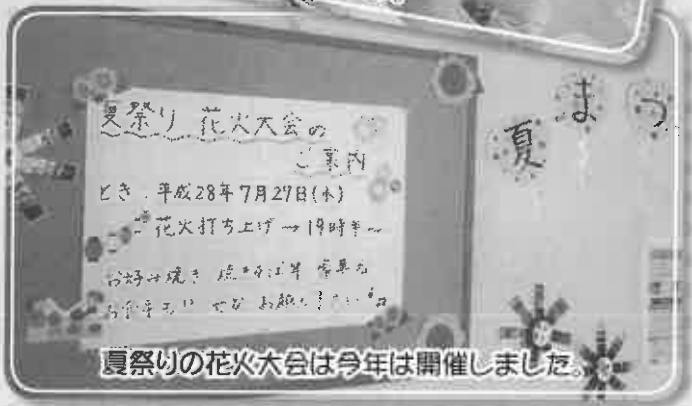 夏祭り 花火大会の
ご案内
とき 平成28年7月27日(水)
花火打ち上げ→19時半～
お好み焼き 焼きそば等
夏まつ
夏祭りの花火大会は今年は開催しました。